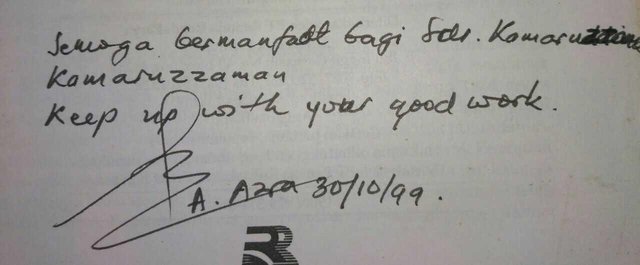 Semoga bermanfaat bagi Sdr.
Kamaruzzaman
Keep up with your good work.
A. Azra 30/10/99.